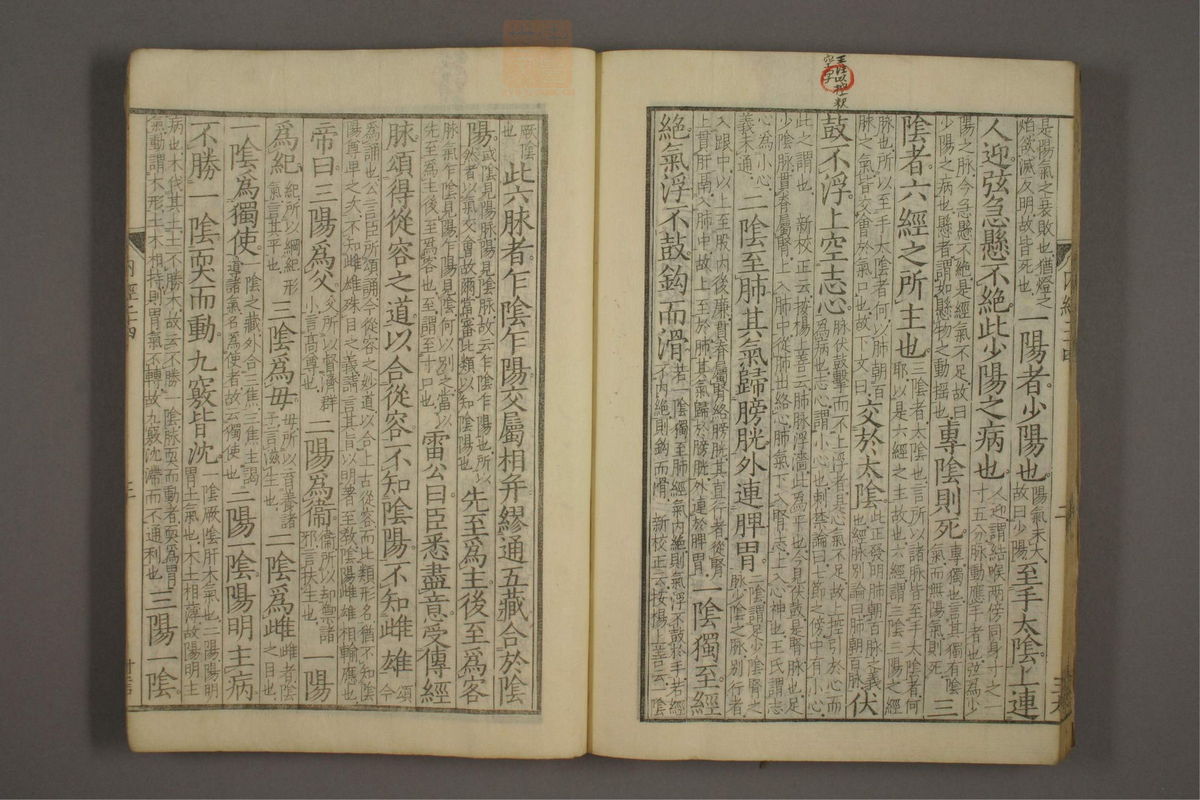 王注以控釈
空字
是陽氣之衰敗也猶燈之焰欲滅反明故皆死也一陽者少陽也陽氣未大故曰少陽至手太陰上連
人迎弦急懸不絶此少陽之病也人迎謂結喉兩傍同身寸之一寸五分脉動應手者也弦爲少
陽之脉今急懸不絶是經氣不足故曰少陽之病也懸者謂如懸物之動搖也專陰則死專獨也言其獨有陰氣而無陽氣則死三
陰者六經之所主也三陰者太陰也言所以諸脉皆至手太陰者何耶以是六經之主故也六經謂三陰三陽之經
脉也所以至手太陰者何以肺朝百脉之氣皆交會於氣口也故下文曰交於太陰此正發明肺朝百脉之義也經脉別論曰肺朝百脉伏
鼓不浮上空志心脉伏鼓擊而不上浮者是心氣不足故上控引於心而爲病也志心謂小心也刺禁論曰七節之傍中有小心
此之謂也新校正云按楊上善云肺脉浮濇此爲平也今見伏鼓是腎脉也足少陰脉貫脊屬腎上入肺中從肺出絡心肺氣下入腎志上入心神也王氏謂志
心爲小心義未通二陰至肺其氣歸膀胱外連脾胃二陰謂足少陰腎之脉少陰之脉別行者
入跟中以上至股內後廉貫脊屬腎絡膀胱其直行者從腎上貫肝鬲入肺中故上至於肺其氣歸於膀胱外連於脾胃一陰獨至經
絶氣浮不鼓鈎而滑若一陰獨至肺經氣內絶則氣浮不鼓於手若經不內絶則鈎而滑新校正云按楊上善云一陰
厥陰也此六脉者乍陰乍陽交屬相并繆通五藏合於陰
陽或陰見陽脉陽見陰脉故云乍陰乍陽也所以然者以氣交會故爾當審比類以知陰陽也先至爲主後至爲客
脉氣乍陰見陽乍陽見陰何以別之當以先至爲主後至爲客也至謂至寸口也雷公曰臣悉盡意受傳經
脉頌得從容之道以合從容不知陰陽不知雌雄頌今
爲誦也公言臣所頌誦今從容之妙道以合上古從容而比類形名猶不知陰陽尊卑之次不知雌雄殊目之義請言其旨以明著至教陰陽雌雄相輸應也
帝曰三陽爲父父所以督濟羣小言高尊也二陽爲衞衞所以却禦諸邪言扶生也一陽
爲紀紀所以綱紀形氣言其平也三陰爲母母所以育養諸子言滋生也二陰爲雌雌者陰之目也
一陰爲獨使陰之藏外合三焦三焦主謁導諸氣名爲使者故云獨使也二陽一陰陽明主病
不勝一陰耎而動九竅皆沈一陰厥陰肝木氣也二陽陽明胃土氣也木土相薄故陽明主
病也木伐其土土不勝木故云不勝一陰脉耎而動者耎爲胃氣動謂木形土木相持則胃氣不轉故九竅沈滯而不通利也三陽一陰
內經二十四